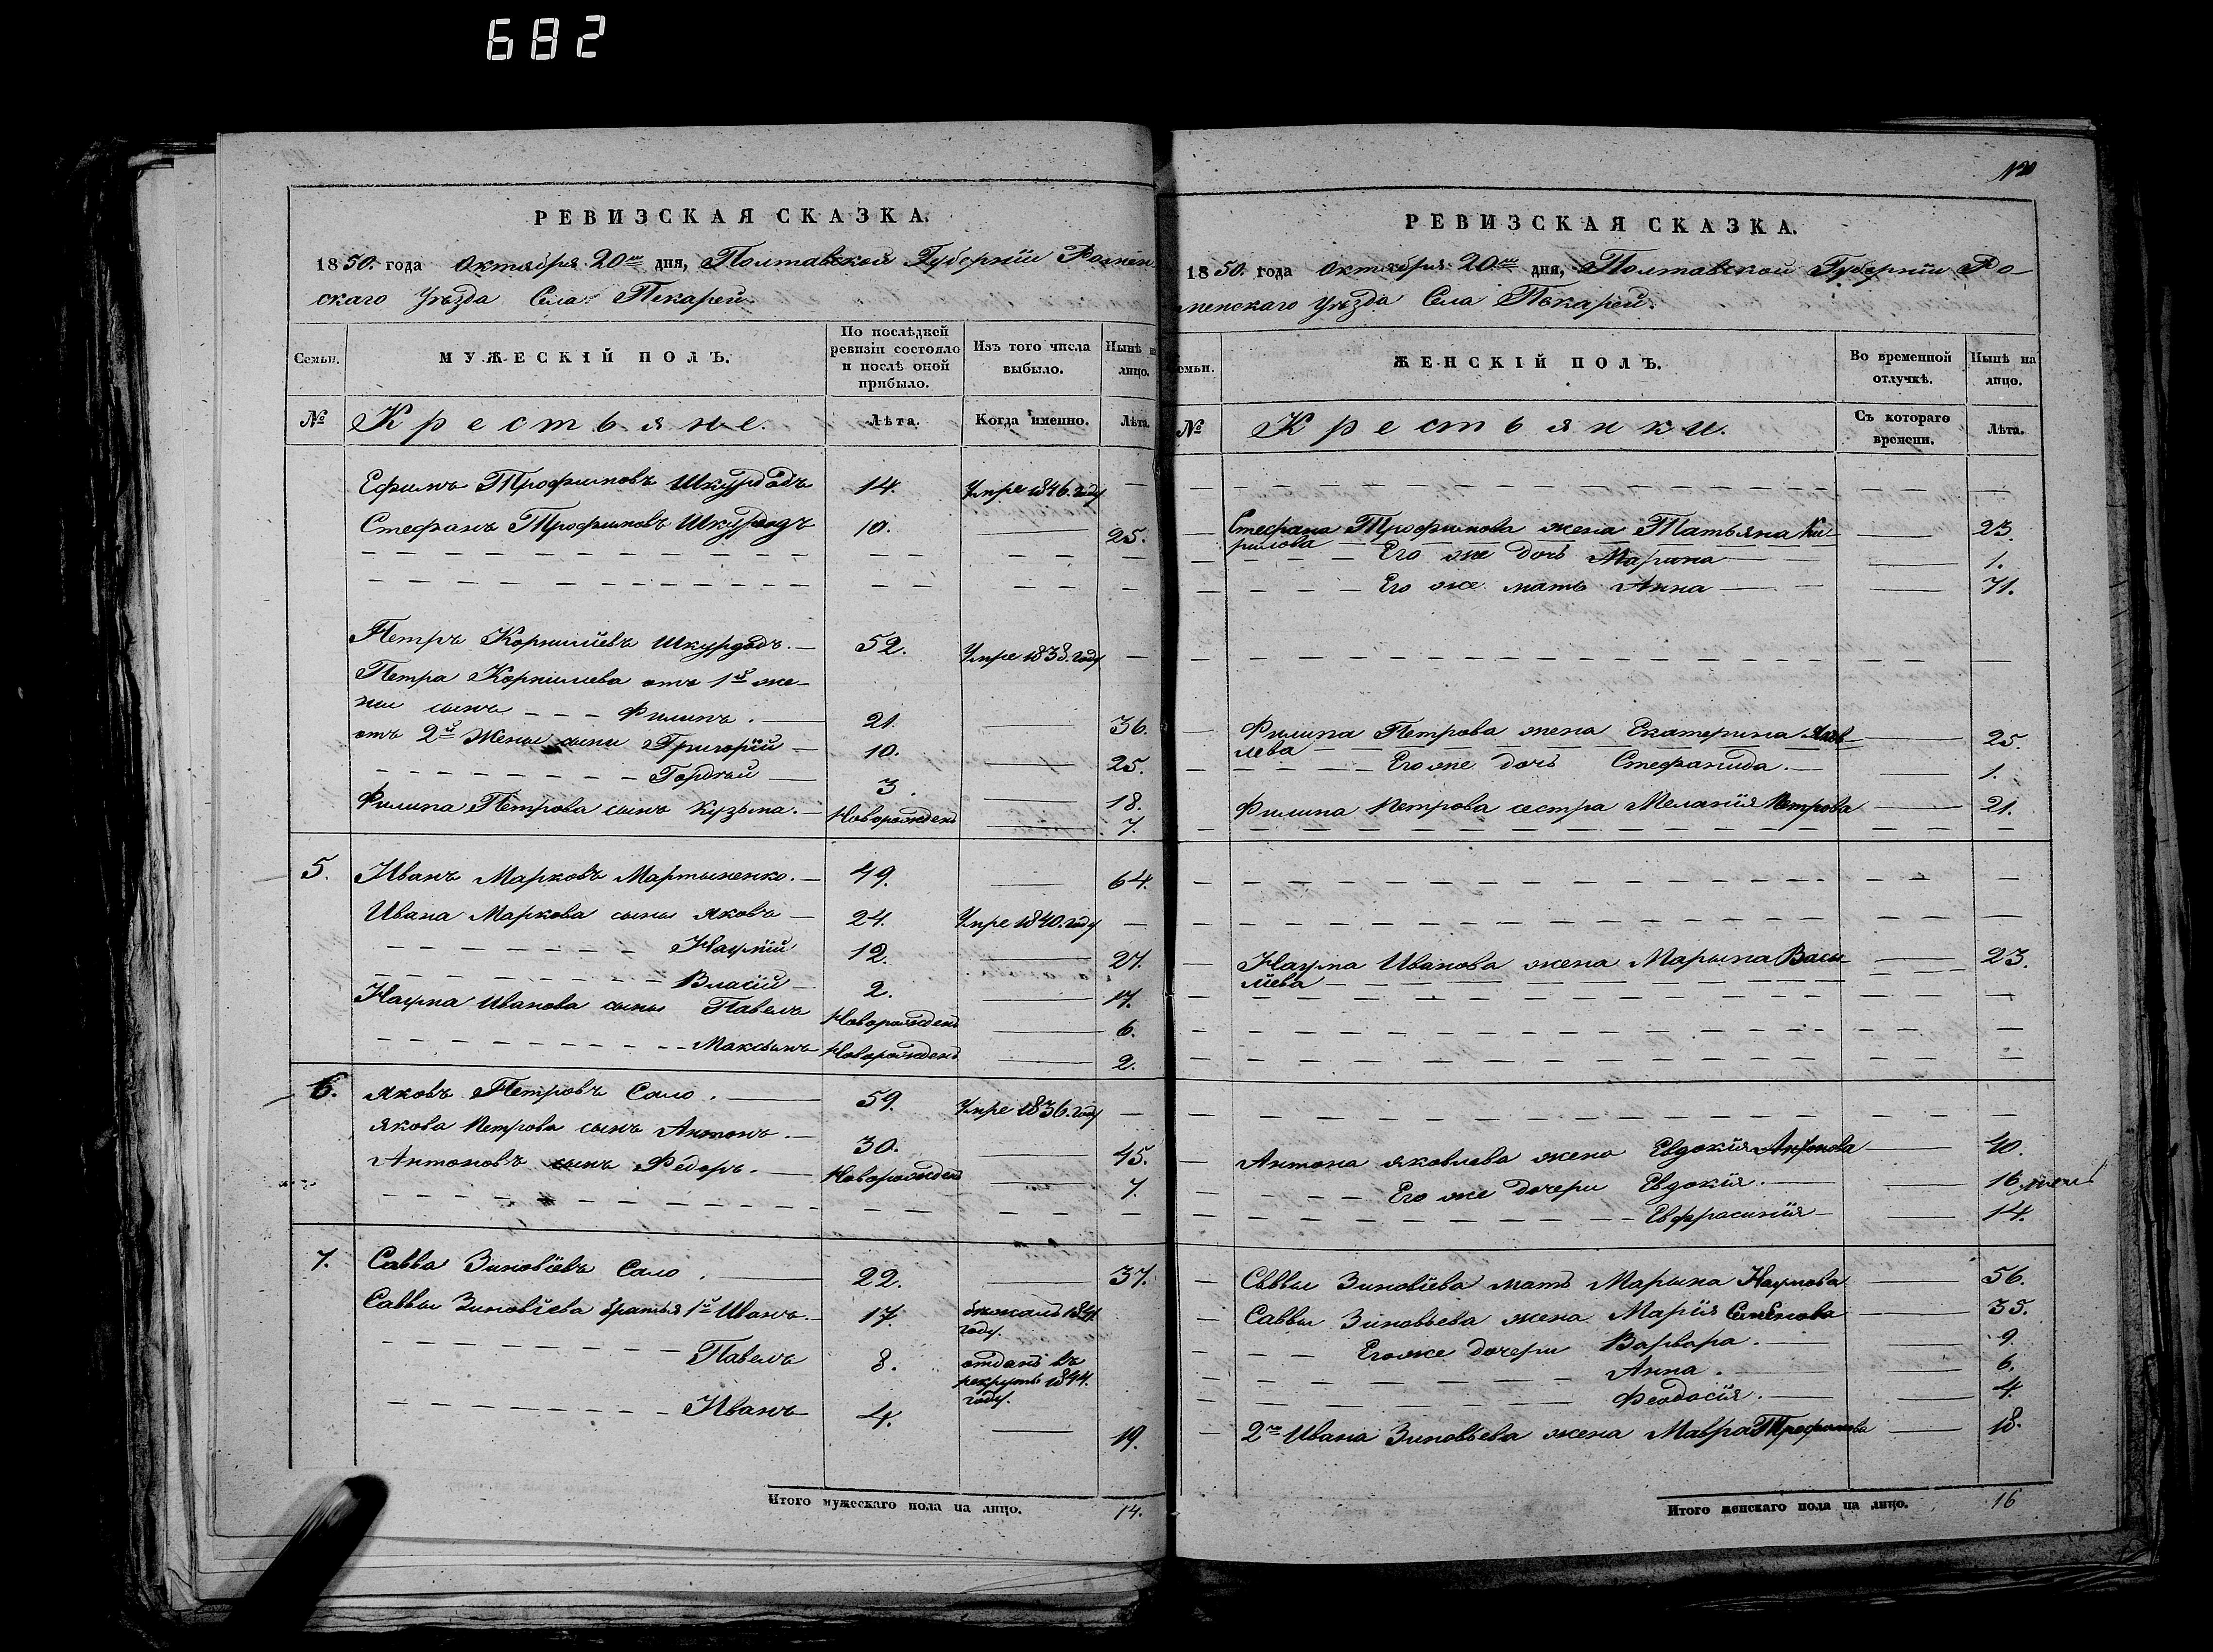 682
РЕВИЗСКАЯ СКАЗКА.
1850. года Октября 20го дня, Полтавской Губернїи Ромен
скаго Уѣзда Села Пекарей.
Семьи.
МУЖЕСКІЙ ПОЛЪ.
По послѣдней ревизіи состояло и послѣ оной прибыло.
Изъ того числа выбыло.
Нынѣ на лицо.
№ Крестьяне. Лѣта. Когда именно. Лѣта.
Ефимъ Трофимовъ Шкурдодъ 14. Умре 1846. году —
Стефанъ Трофимовъ Шкурдодъ 10. — 25.
Петръ Корнилїевъ Шкурдодъ. — 52. Умре 1838. году —
Петра Корнилиева отъ 1й же-
ны сынъ — — — Филипъ. — 21. — 36.
отъ 2й Жены сыны Григорїй — 10. — 25.
Гордѣй — 3. — 18.
Филипа Петрова сынъ Кузьма. — Новорожденъ — 7.
5. Иванъ Марковъ Мартыненко. — 49. — 64.
Ивана Маркова сыны Яковъ — 24. Умре 1840. году —
Наумїй 12. — 27.
Власїй — 2. — 17.
Наума Иванова сыны Павелъ Новорожденъ — 6.
Максимъ Новорожденъ — 2.
6. Яковъ Петровъ Сало. — 59. Умре 1836. году —
Якова Петрова сынъ Антонъ. — 30. — 45.
Антоновъ сынъ Федоръ. — Новорожденъ — 7.
7. Савва Зиновїевъ Сало. — 22. — 37.
Саввы Зиновїева братья 1й Иванъ. — 17. бежалъ
году.
Павелъ 8. отданъ въ
рекруты 1844.
году.
Иванъ 4. — 19.
Итого мужескаго пола на лицо. 14.
РЕВИЗСКАЯ СКАЗКА.
1850. года Октября 20го дня, Полтавской Губернїи Ро-
менскаго Уѣзда Села Пекарей.
Семьи.
ЖЕНСКІЙ ПОЛЪ.
Во временной отлучкѣ.
Нынѣ на лицо.
№ Крестьянки. Съ котораго времени. Лѣта.
Стефана Трофимова жена Татьяна Ки- — 23.
рилова — Его же дочь Марина — 1.
Его же мать Анна — 71.
Филипа Петрова жена Екатерина — 25.
Его же дочь Стефанида. — 1.
Филипа Петрова сестра Меланїя Петрова — 21.
Наума Иванова жена Марына Васи- — 23.
лїева
Антона Яковлева жена Евдокїя — 40.
Его же дочери Евдокїя. — 16.
Евфросинїя — 14.
Саввы Зиновїева мать Марына Наумова — 56.
Саввы Зиновьева жена Марїя Семенова — 35.
Его же дочери Варвара. — 9.
Анна. — 6.
Феодосїя. — 4.
2го Ивана Зиновьева жена Мавра Трофимова — 18.
Итого женскаго пола на лицо. 16